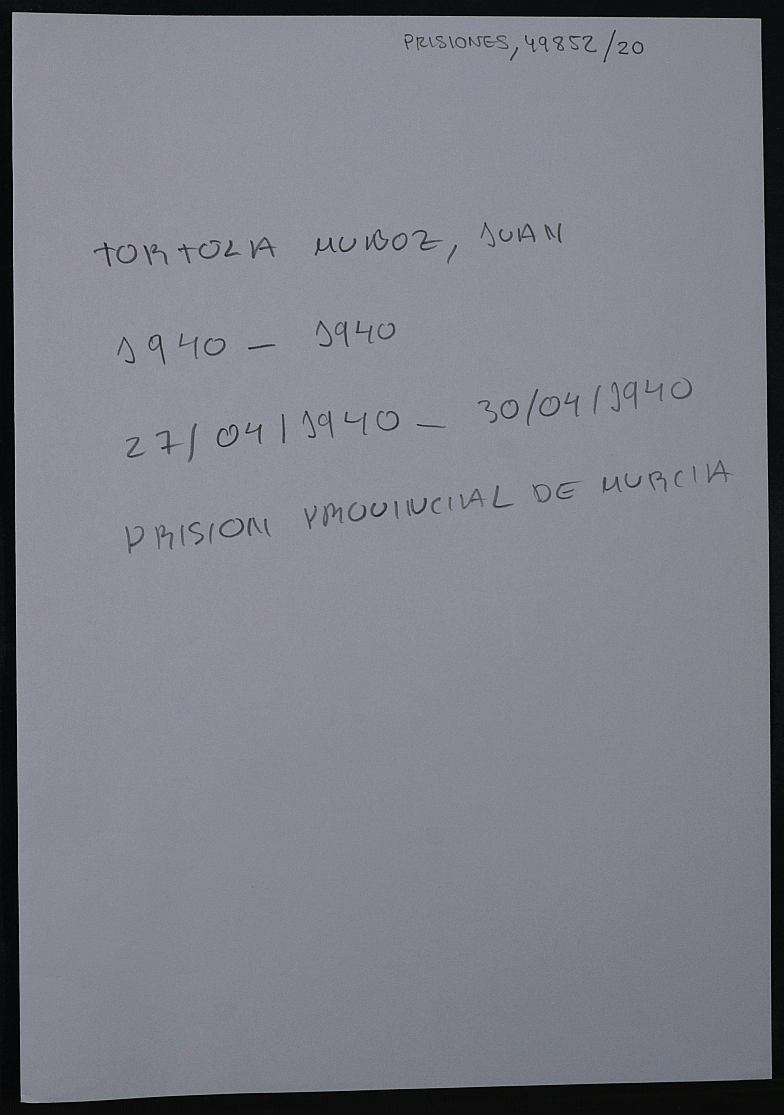 PRISIONES, 49852/20
TORTOLA MUÑOZ, JUAN
1940 - 1940
27/04/1940 - 30/04/1940
PRISION PROVINCIAL DE MURCIA